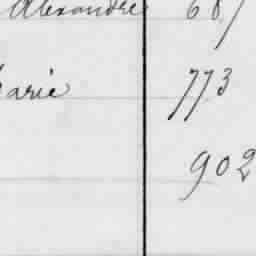 Alexandre 687
Marie 773
902